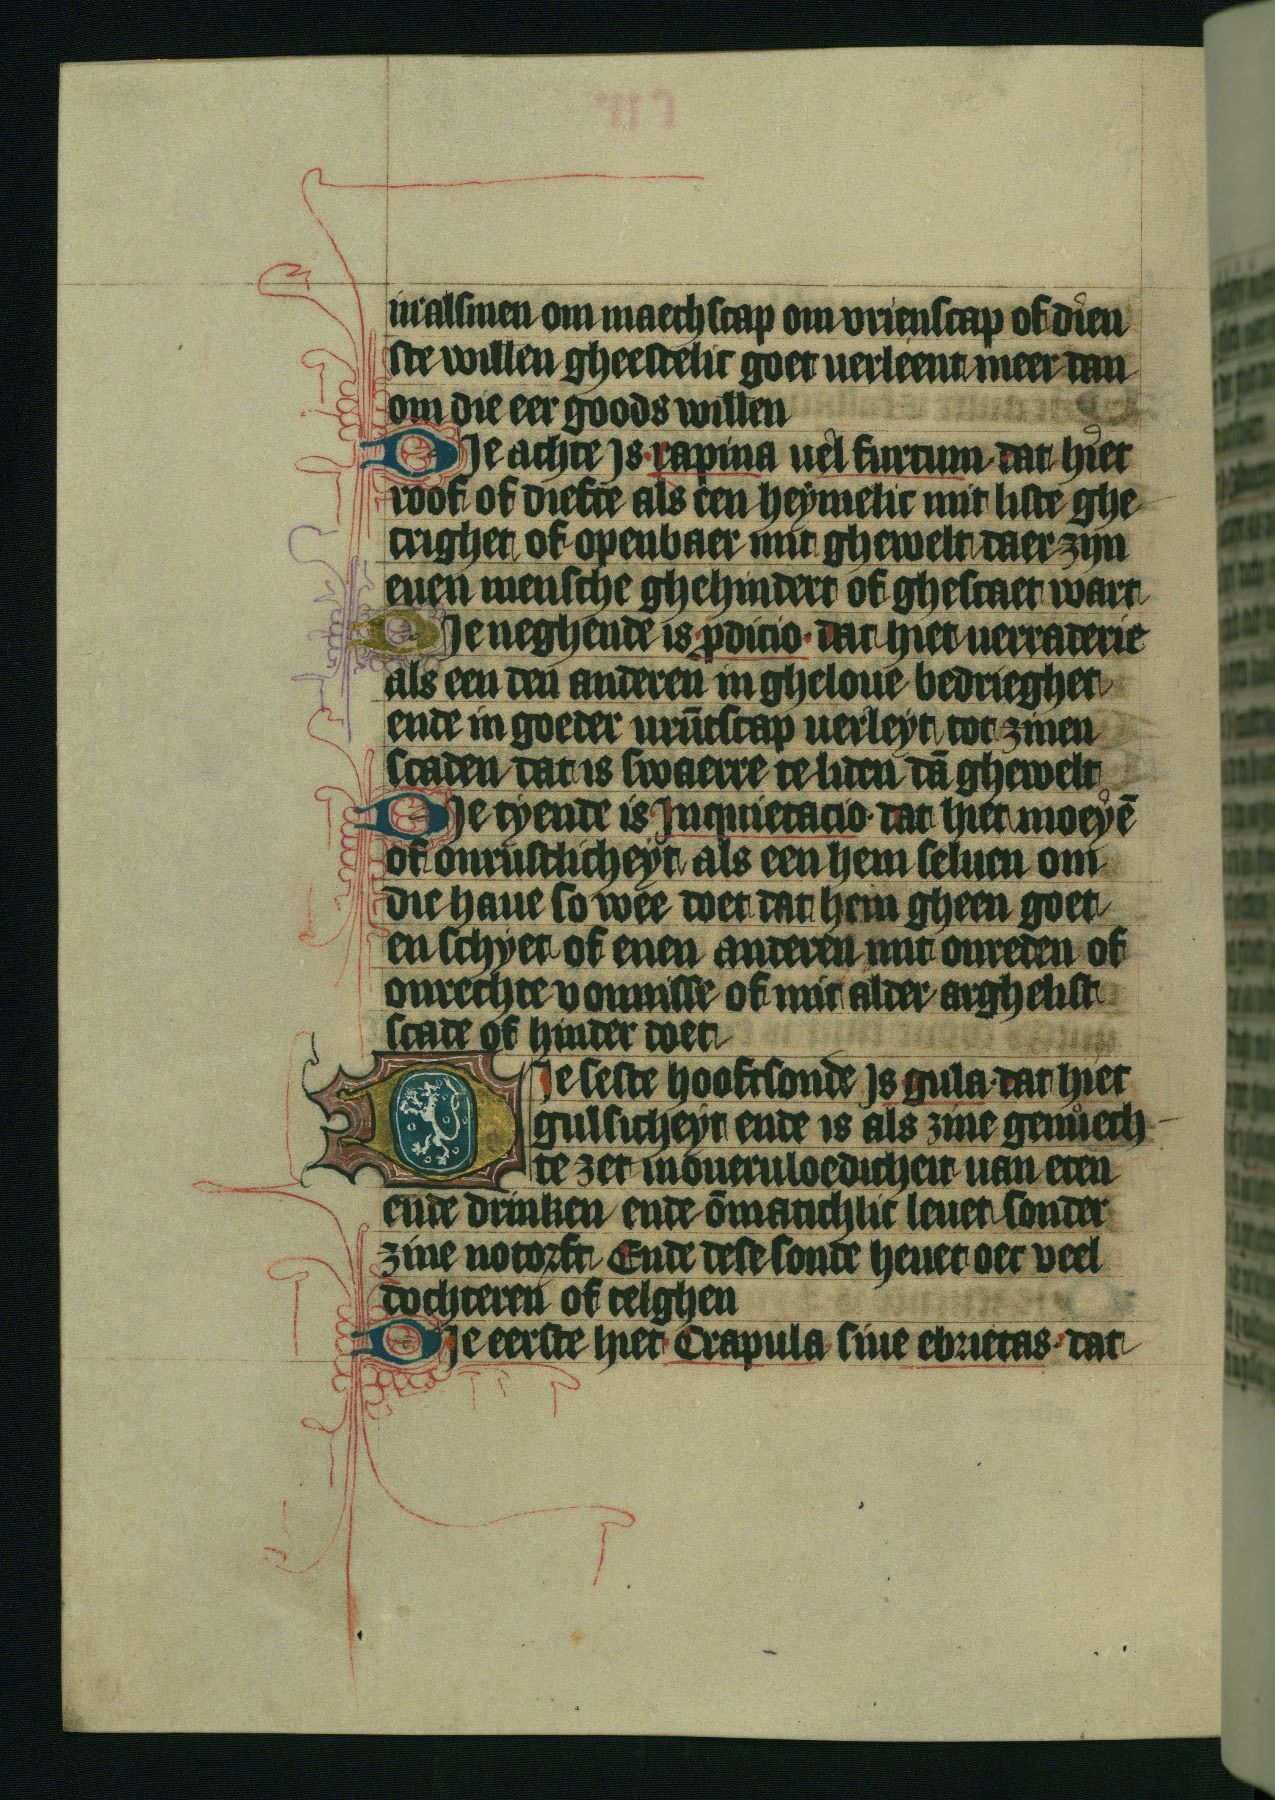 in alsmen om maechscap om vrienscap of dien
ste willen gheestelic goet verleent meer dan
om die eer goods willen
Die achte Is rapina vel furtum dat hiet
roof of diefte als een heymelic mit liste ghe
crighet of openbaer mit ghewelt daer zijn
euen mensche ghehindert of ghescaet wart
Die neghende is pdicio dat hiet verraderie
als een den anderen in gheloue bedrieghet
ende in goeder vrūtscap verleyt tot zinen
scaden dat is swaerre te liden dā ghewelt
Die tyende is Inquietacio dat hiet moeyē
of onrusticheyt als een hem seluen om
die haue so wee doet dat hem gheen goet
en schyet of enen anderen mit onreden of
onrechte vonnisse of mit alder arghelist
scade of hinder doet
Die seste hooftsonde Is gula dat hiet
gulsicheyt ende is als zine genuech
te zet in ouervloedicheit van eten
ende drinken ende ōmatichlic leuet sonder
zine notorft Ende dese sonde heuet oec veel
dochteren of telghen
Die eerste hiet Crapula siue ebrietas dat